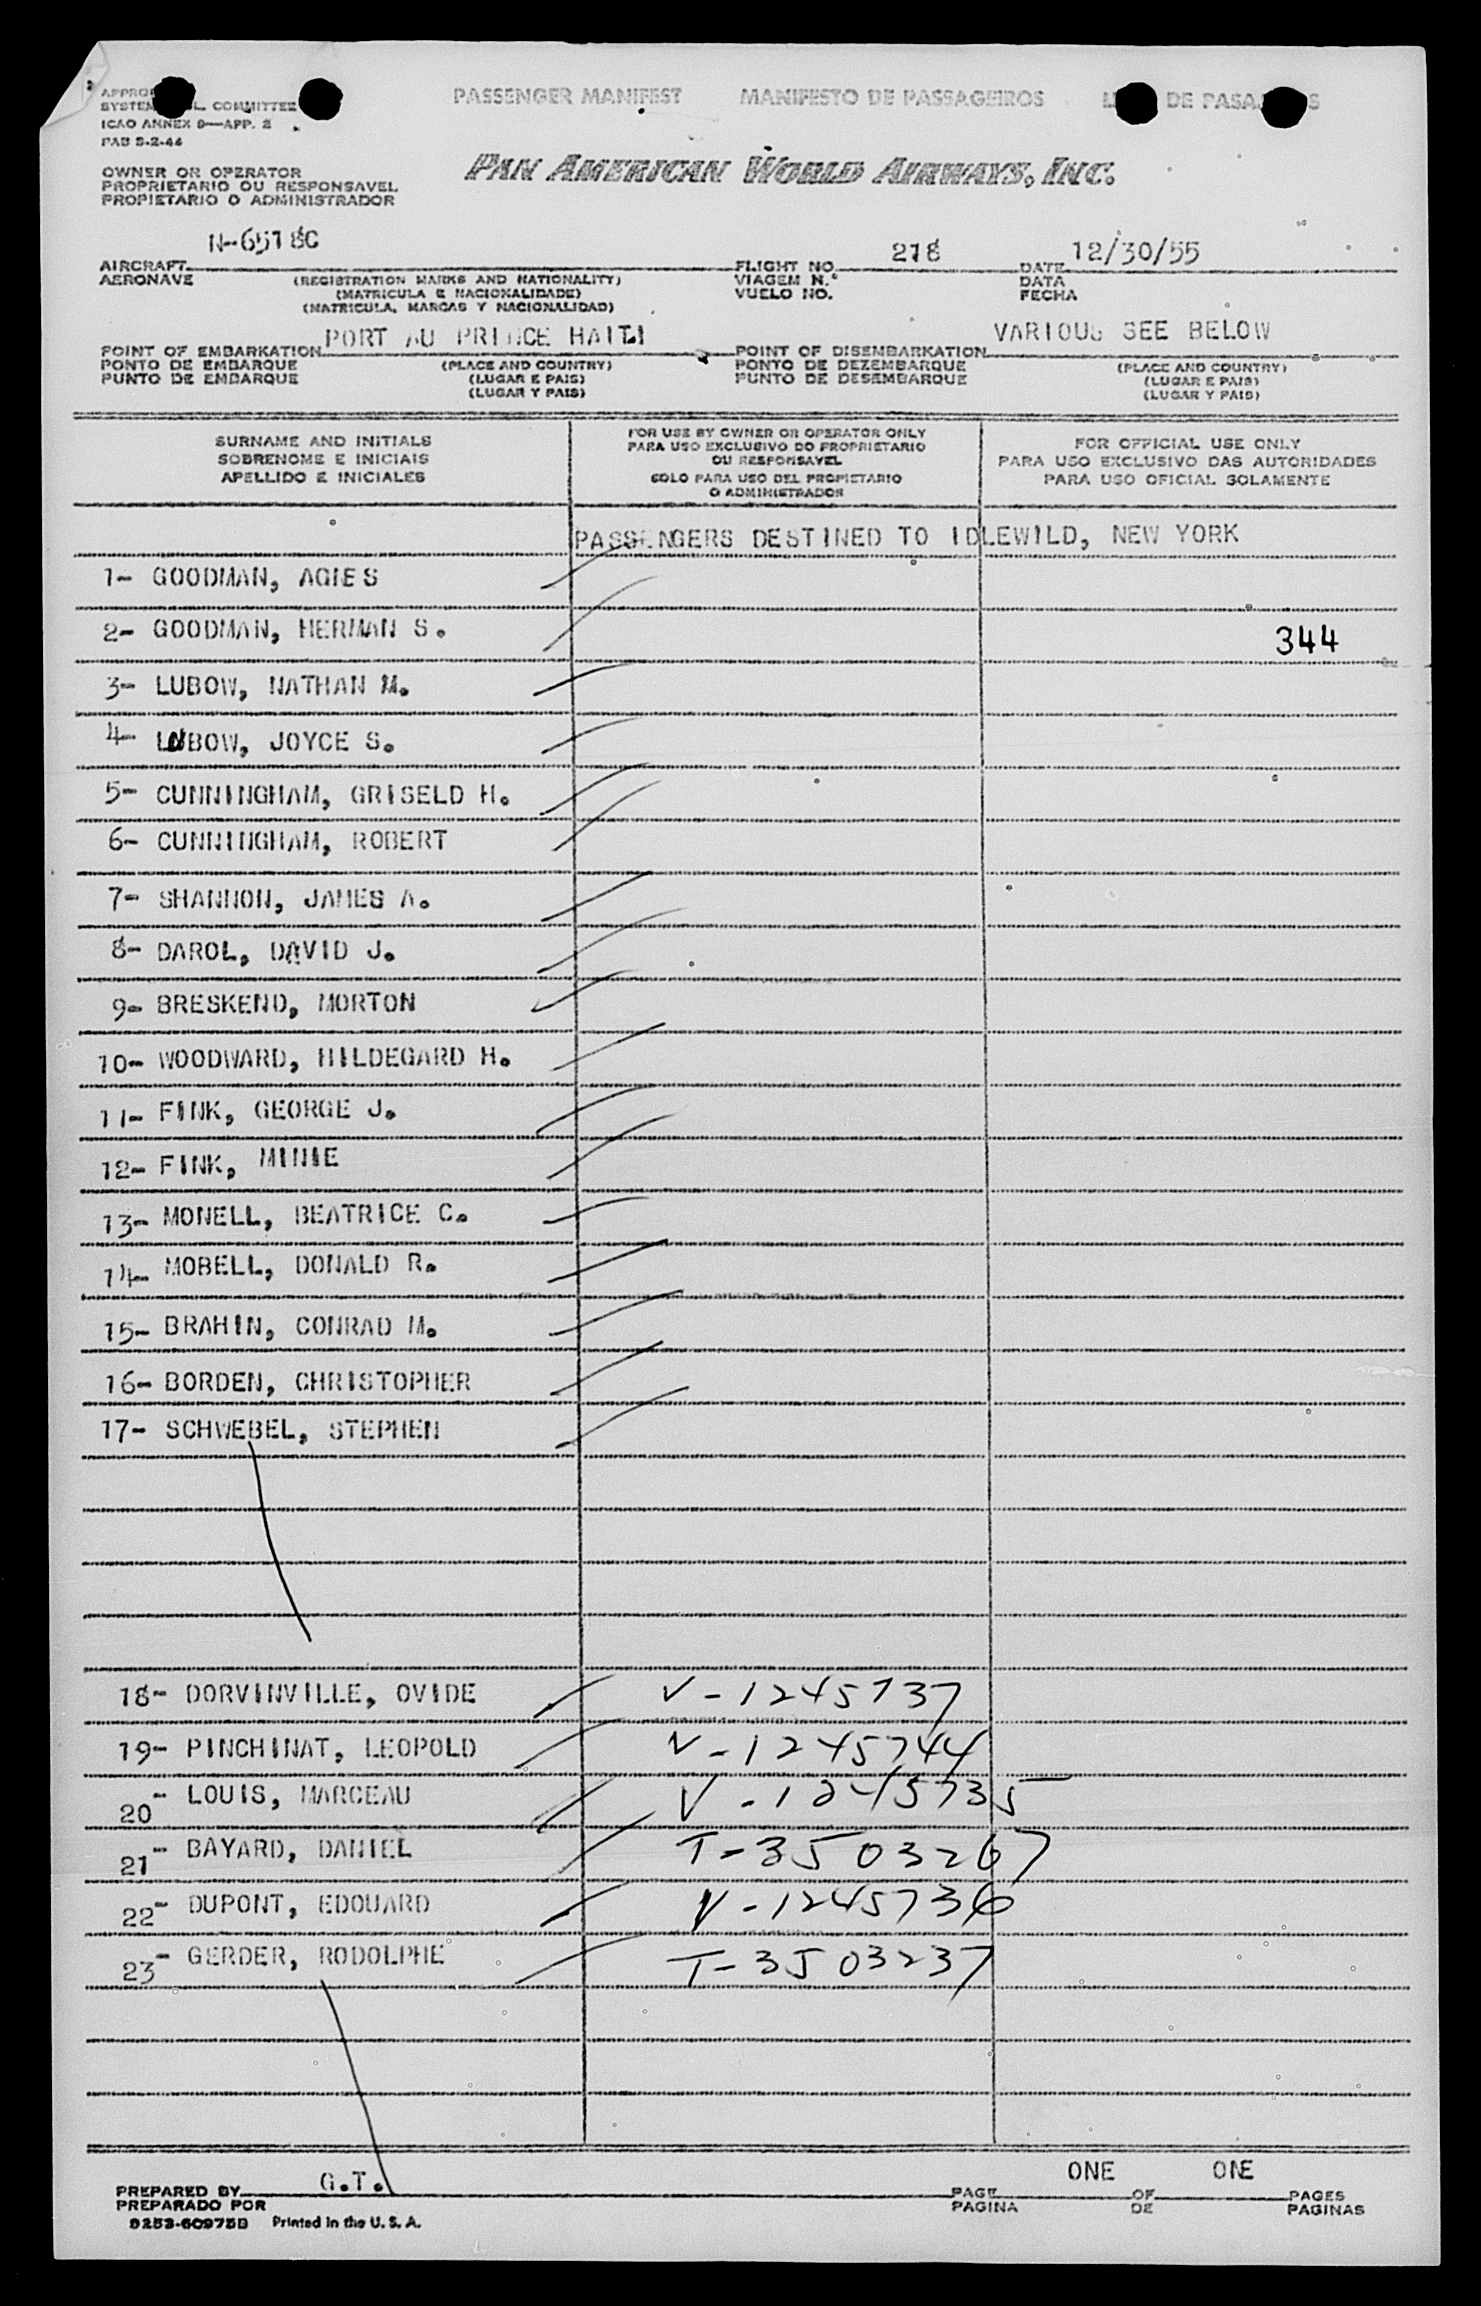 PASSENGER MANIFEST MANIFESTO DE PASSAGEIROS DE PASA
SYSTEM COMMITTEE
ICAO ANNEX 9—APP. 2
PAB S-2-44
OWNER OR OPERATOR
PROPRIETARIO OU RESPONSAVEL
PROPIETARIO O ADMINISTRADOR
PAN AMERICAN WORLD AIRWAYS, INC.
N-6518C 218 12/30/55
AIRCRAFT FLIGHT NO. DATE
AERONAVE (REGISTRATION MARKS AND NATIONALITY) VIAGEM N.° DATA
(MATRICULA E NACIONALIDADE) VUELO NO. FECHA
(MATRICULA, MARCAS Y NACIONALIDAD)
PORT AU PRINCE HAITI VARIOUS SEE BELOW
POINT OF EMBARKATION POINT OF DISEMBARKATION
PONTO DE EMBARQUE (PLACE AND COUNTRY) PONTO DE DEZEMBARQUE (PLACE AND COUNTRY)
PUNTO DE EMBARQUE (LUGAR E PAIS) PUNTO DE DESEMBARQUE (LUGAR E PAIS)
(LUGAR Y PAIS) (LUGAR Y PAIS)
SURNAME AND INITIALS
SOBRENOME E INICIAIS
APELLIDO E INICIALES
FOR USE BY OWNER OR OPERATOR ONLY
PARA USO EXCLUSIVO DO PROPRIETARIO
OU RESPONSAVEL
SOLO PARA USO DEL PROPIETARIO
O ADMINISTRADOR
FOR OFFICIAL USE ONLY
PARA USO EXCLUSIVO DAS AUTORIDADES
PARA USO OFICIAL SOLAMENTE
PASSENGERS DESTINED TO IDLEWILD, NEW YORK
1- GOODMAN, AGNES
2- GOODMAN, HERMAN S. 344
3- LUBOW, NATHAN M.
4- LUBOW, JOYCE S.
5- CUNNINGHAM, GRISELD H.
6- CUNNINGHAM, ROBERT
7- SHANNON, JAMES A.
8- DAROL, DAVID J.
9- BRESKEND, MORTON
10- WOODWARD, HILDEGARD H.
11- FINK, GEORGE J.
12- FINK, MINIE
13- MONELL, BEATRICE C.
14- MOBELL, DONALD R.
15- BRAHIN, CONRAD M.
16- BORDEN, CHRISTOPHER
17- SCHWEBEL, STEPHEN
18- DORVINVILLE, OVIDE V-1245737
19- PINCHINAT, LEOPOLD V-1245744
20- LOUIS, MARCEAU V-1245735
21- BAYARD, DANIEL T-3503267
22- DUPONT, EDOUARD V-1245736
23- GERDER, RODOLPHE T-3503237
G.T. ONE ONE
PREPARED BY PAGE OF PAGES
PREPARADO POR PAGINA DE PAGINAS
9253-60975B Printed in the U. S. A.